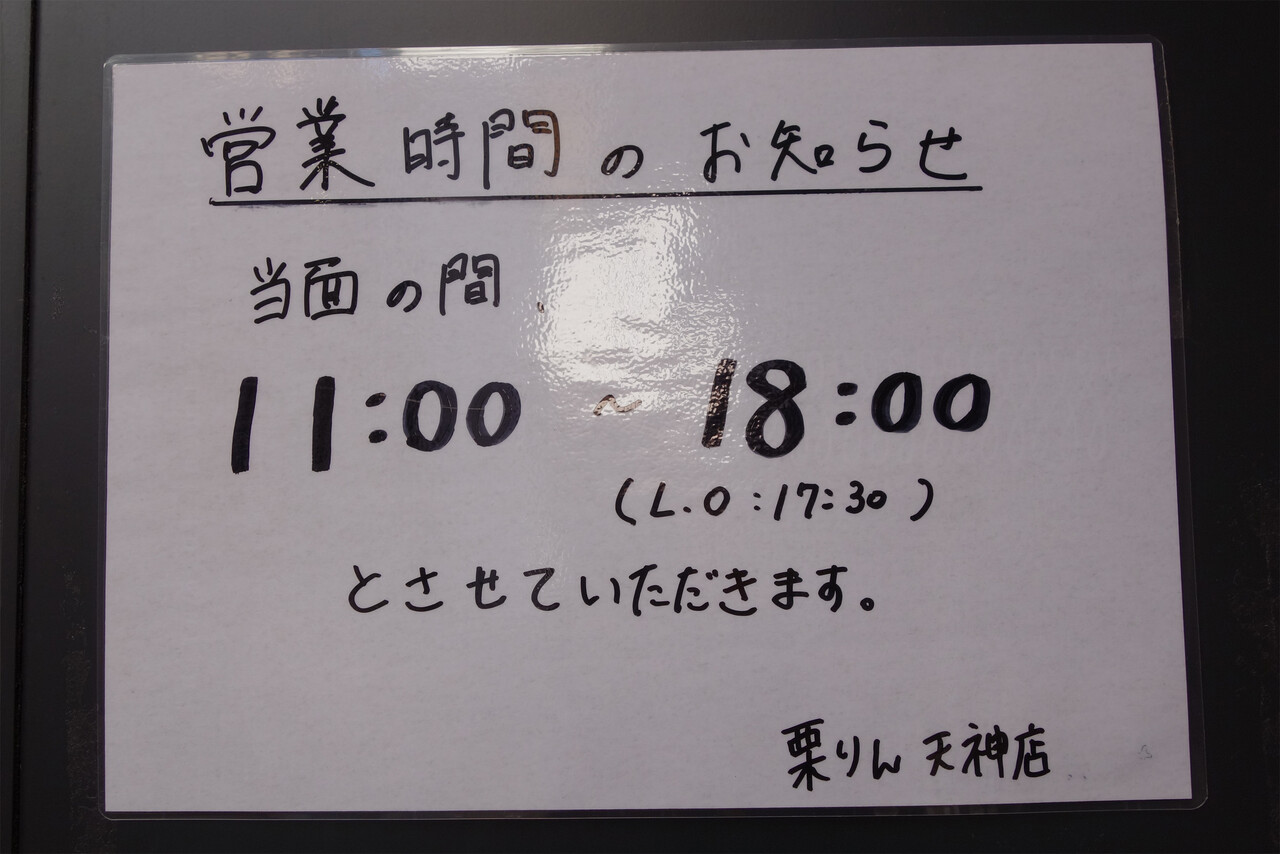 営業時間のお知らせ
当面の間
11:00 ~ 18:00
(L.O:17:30)
とさせていただきます。
栗りん 天神店